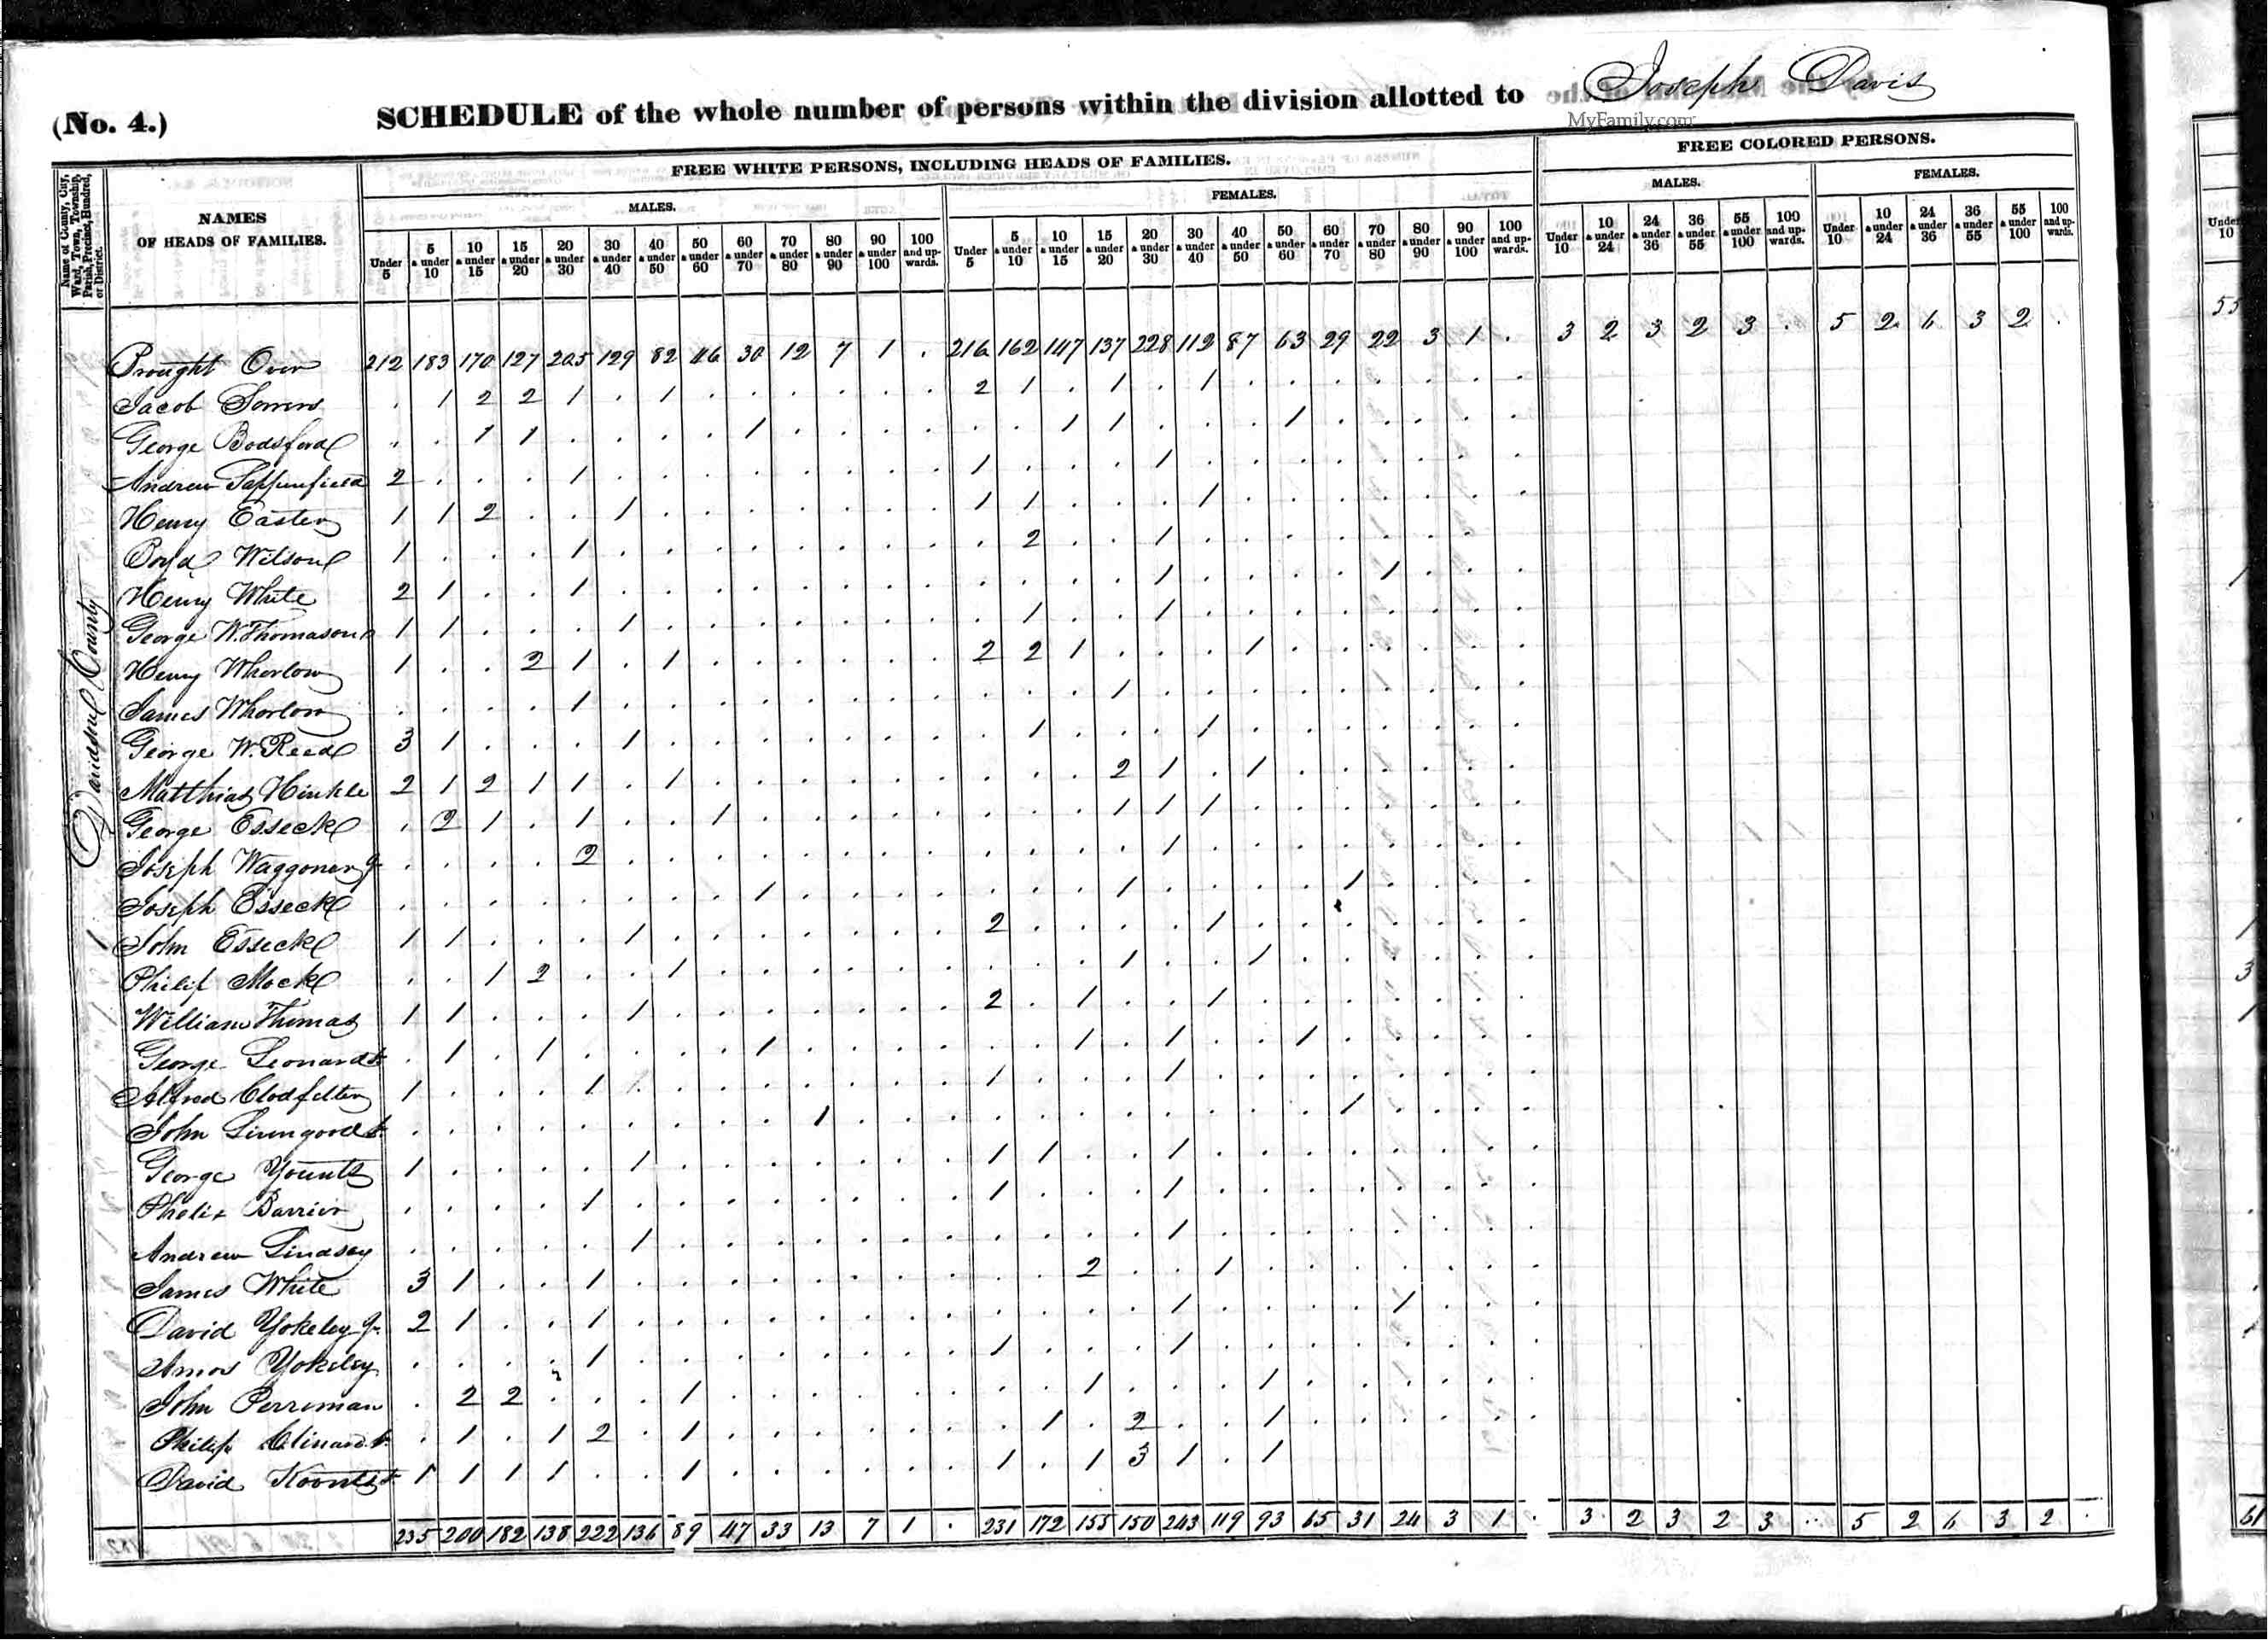 (No. 4.)
SCHEDULE of the whole number of persons within the division allotted to Joseph Davis
MyFamily.com
Name of County, City, Ward, Town, Township, Parish, Precinct, Hundred, or District.
NAMES OF HEADS OF FAMILIES.
FREE WHITE PERSONS, INCLUDING HEADS OF FAMILIES.
FREE COLORED PERSONS.
MALES. FEMALES. MALES. FEMALES.
Under 5 | 5 & under 10 | 10 & under 15 | 15 & under 20 | 20 & under 30 | 30 & under 40 | 40 & under 50 | 50 & under 60 | 60 & under 70 | 70 & under 80 | 80 & under 90 | 90 & under 100 | 100 and upwards. | Under 5 | 5 & under 10 | 10 & under 15 | 15 & under 20 | 20 & under 30 | 30 & under 40 | 40 & under 50 | 50 & under 60 | 60 & under 70 | 70 & under 80 | 80 & under 90 | 90 & under 100 | 100 and upwards. | Under 10 | 10 & under 24 | 24 & under 36 | 36 & under 55 | 55 & under 100 | 100 and upwards. | Under 10 | 10 & under 24 | 24 & under 36 | 36 & under 55 | 55 & under 100 | 100 and upwards.
Davidson County
Brought Over 212 183 170 127 205 129 82 46 30 12 7 1 . 216 162 147 137 228 112 87 63 29 22 3 1 . 3 2 3 2 3 . 5 2 6 3 2 .
Jacob . 1 2 2 1 . 1 . . . . . . 2 1 . 1 . 1 . . . . . . .
George Bodsford . . 1 1 . . . . 1 . . . . . . 1 1 . . . 1 . . . . .
Andrew 2 . . . 1 . . . . . . . . 1 . . . 1 . . . . . . . .
Henry Easter 1 1 2 . . 1 . . . . . . . 1 1 . . . 1 . . . . . . .
Boyd Wilson 1 . . . 1 . . . . . . . . . 2 . . 1 . . . . . . . .
Henry White 2 1 . . 1 . . . . . . . . . . . . 1 . . . . 1 . . .
George W. Thomason 1 1 . . . 1 . . . . . . . . 1 . . 1 . . . . . . . .
Henry Whorlow 1 . . 2 1 . 1 . . . . . . 2 2 1 . . . 1 . . . . . .
James Whorlow . . . . 1 . . . . . . . . . . . 1 . . . . . . . . .
George W. Reed 3 1 . . . 1 . . . . . . . . 1 . . . 1 . . . . . . .
Matthias Hinkle 2 1 2 1 1 . 1 . . . . . . . . . 2 1 . 1 . . . . . .
George Esseck . 2 1 . 1 . . 1 . . . . . . . . 1 1 1 . . . . . . .
Joseph Waggoner Jr . . . . 2 . . . . . . . . . . . . 1 . . . . . . . .
Joseph Esseck . . . . . . . . 1 . . . . . . . 1 . . . . 1 . . . .
John Esseck 1 1 . . . 1 . . . . . . . 2 . . . . 1 . . . . . . .
Philip Mock . . 1 2 . . 1 . . . . . . . . . 1 . . 1 . . . . . .
William Thomas 1 1 . . . 1 . . . . . . . 2 . 1 . . 1 . . . . . . .
George Leonard . 1 . 1 . . . . 1 . . . . . . 1 . 1 . . 1 . . . . .
Alfred Clodfelter 1 . . . 1 . . . . . . . . 1 . . . 1 . . . . . . . .
John Livengood . . . . . . . . . 1 . . . . . . . . . . . 1 . . . .
George Yountz 1 . . . . 1 . . . . . . . 1 1 . . 1 . . . . . . . .
Phelix Barrier . . . . 1 . . . . . . . . 1 . . . 1 . . . . . . . .
Andrew Lindsey . . . . . 1 . . . . . . . . . . . 1 . . . . . . . .
James White 3 1 . . 1 . . . . . . . . . . 2 . . 1 . . . . . . .
David Yokeley Jr. 2 1 . . 1 . . . . . . . . . . . . 1 . . . . 1 . . .
Amos Yokeley . . . . 1 . . . . . . . . 1 . . . 1 . . . . . . . .
John Perriman . 2 2 . . . 1 . . . . . . . . 1 . . . 1 . . . . . .
Philip Clinard . 1 . 1 2 . 1 . . . . . . . 1 . 2 . . 1 . . . . . .
David Koontz 1 1 1 1 . . 1 . . . . . . 1 . 1 3 1 . 1 . . . . . .
235 200 182 138 222 136 89 47 33 13 7 1 . 231 172 155 150 243 119 93 65 31 24 3 1 . 3 2 3 2 3 . 5 2 6 3 2 .
Under 10
55
1
1
3
1
61